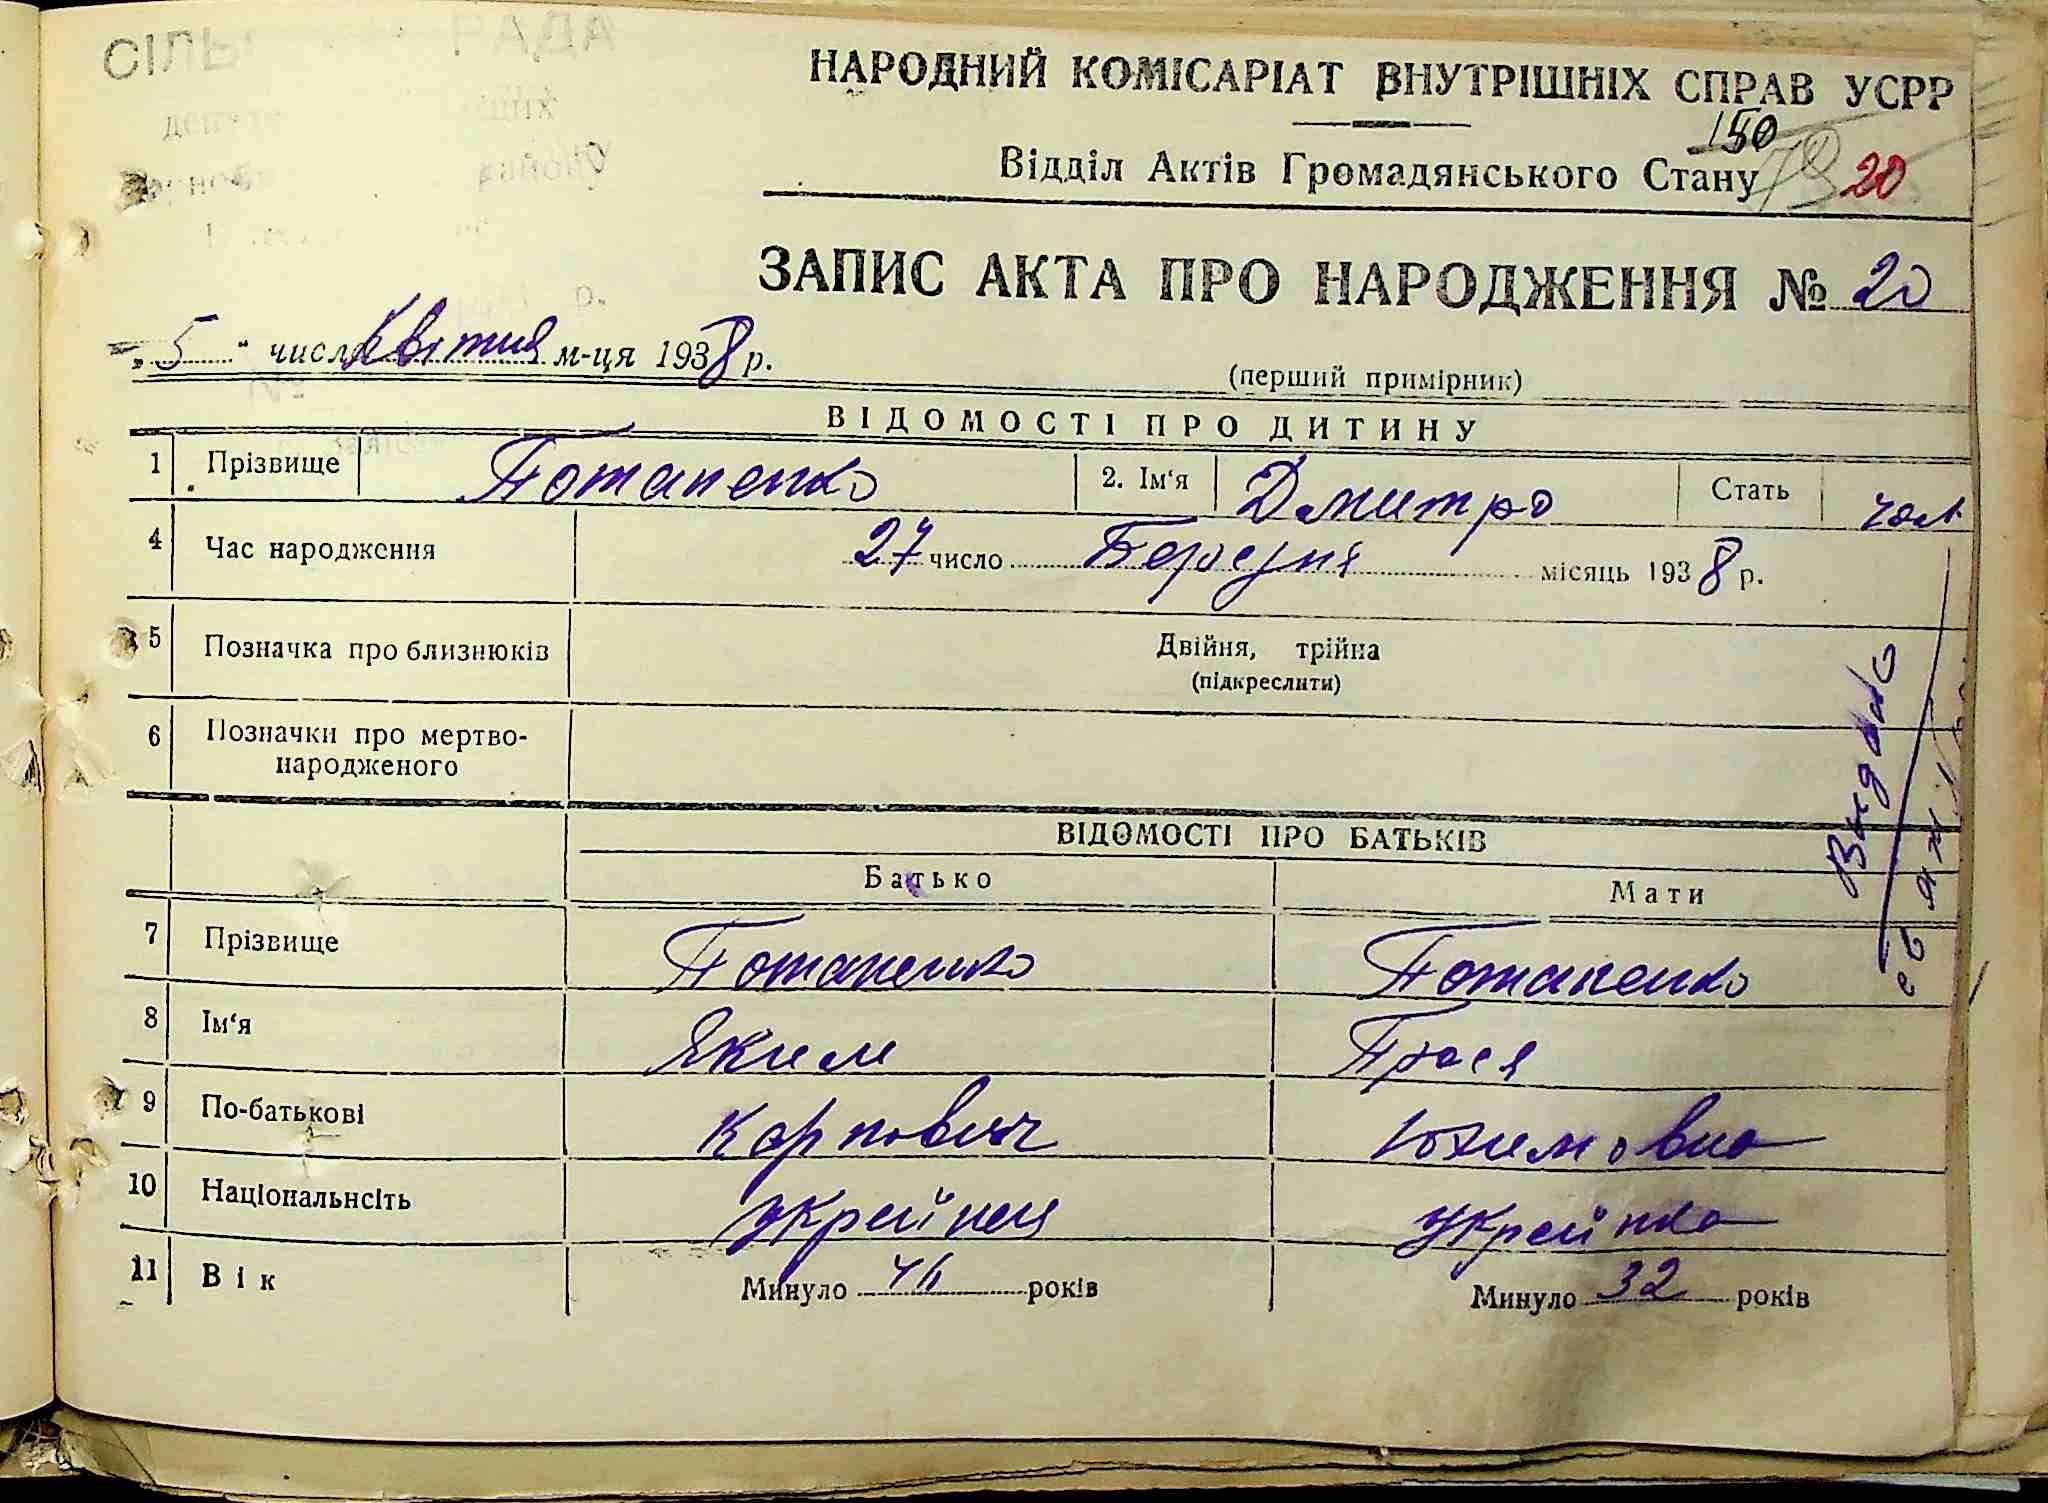 НАРОДНИЙ КОМІСАРІАТ ВНУТРІШНІХ СПРАВ УСРР
150
Відділ Актів Громадянського Стану 20
ЗАПИС АКТА ПРО НАРОДЖЕННЯ № 20
„5“ число Квітня м-ця 1938 р.
(перший примірник)
ВІДОМОСТІ ПРО ДИТИНУ
1 Прізвище Потапенко 2. Ім‘я Дмитро Стать чол
4 Час народження 27 число Березня місяць 1938 р.
5 Позначка про близнюків Двійня, трійна
(підкреслити)
6 Позначки про мертво-
народженого
ВІДОМОСТІ ПРО БАТЬКІВ
Батько Мати
7 Прізвище Потапенко Потапенко
8 Ім‘я Яким Прася
9 По-батькові Карпович Юхимовна
10 Національнсіть українец українка
11 Вік Минуло років Минуло 32 років
Видано